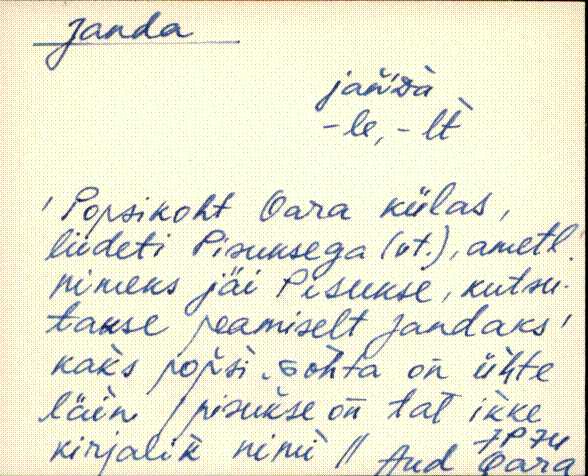 Janda
jańdà
-le, -lt̀
'Popsikoht Oara külas,
liideti Pisuksega (vt.), ametl.
nimeks jäi Pisukse, kutsu-
takse peamiselt Jandaks'
kaks popsi kohta on ühte
läin / pisukse on tat ikke
kirjalik nimi // Aud Oara